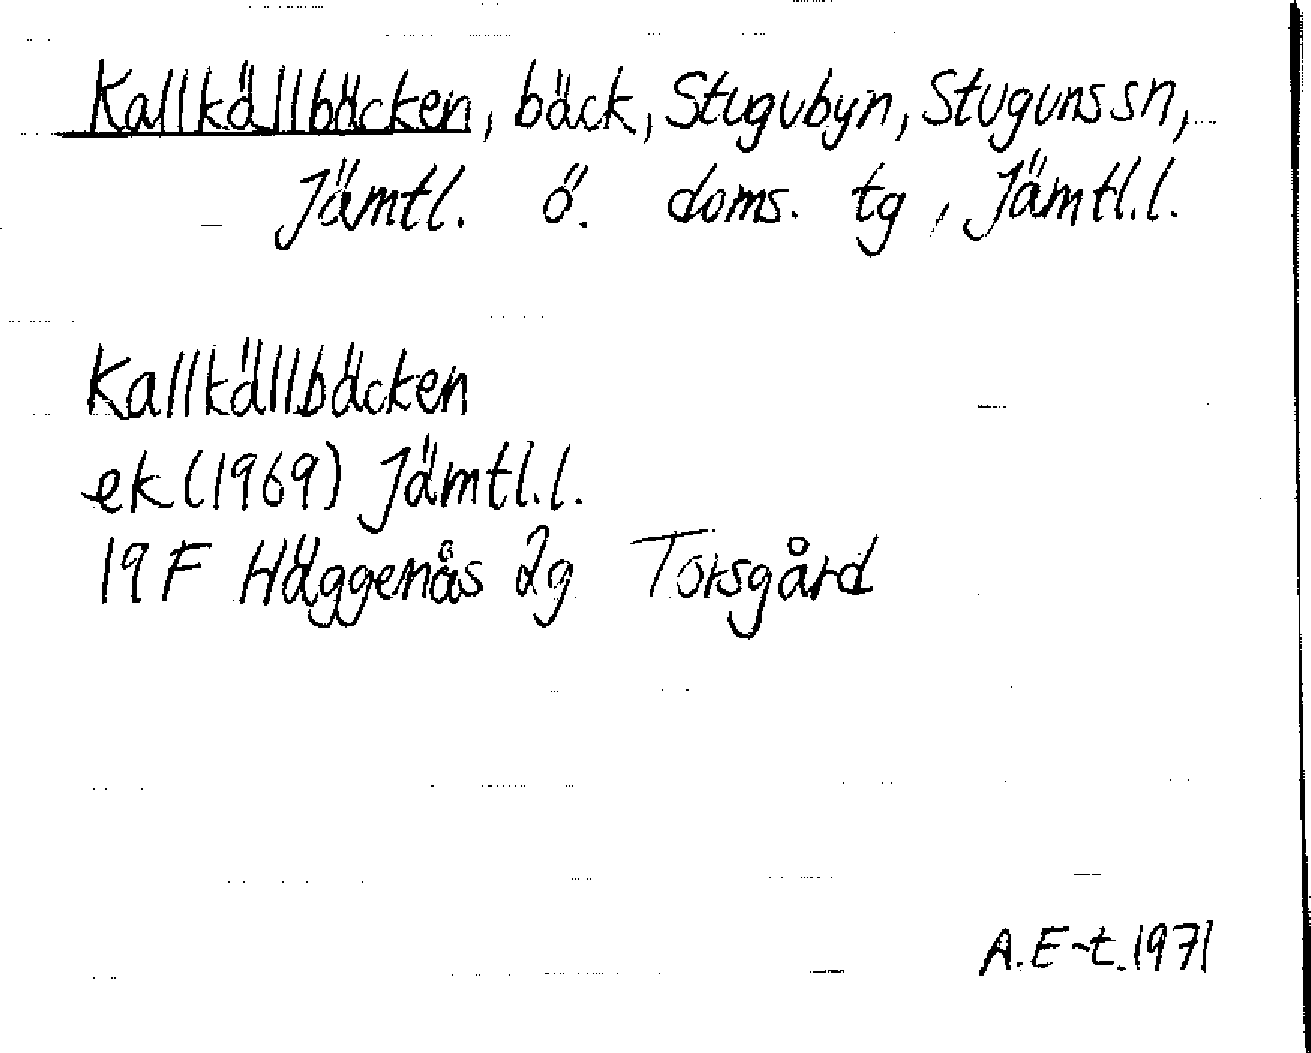 Kallkällbäcken, bäck, Stugubyn, Stuguns sn,
Jämtl. ö. doms. tg, Jämtl.l.
Kallkällbäcken
ek (1969) Jämtl.l.
19 F Häggenås 2g Torsgård
A.E-t. 1971